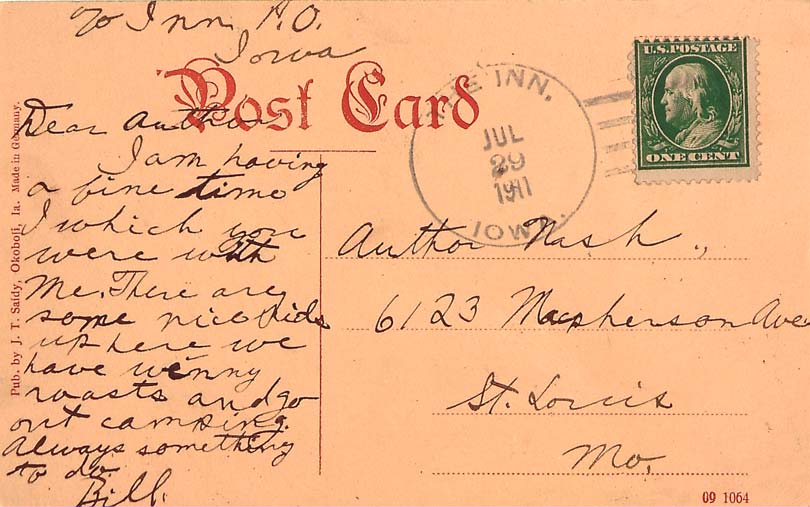 ℅ Inn P.O.
Iowa
Post Card
Dear Autho
I am having
a fine time
I which you
were with
me. There are
some nice kids
up here we
have wenny
roasts and go
out camping.
always something
to do.
Bill.
Pub. by J. T. Saidy, Okoboji, Ia. Made in Germany.
THE INN.
JUL
29
1911
IOWA.
U.S. POSTAGE
ONE CENT
Author Nash,
6123 Macpherson Ave
St. Louis
Mo.
09 1064